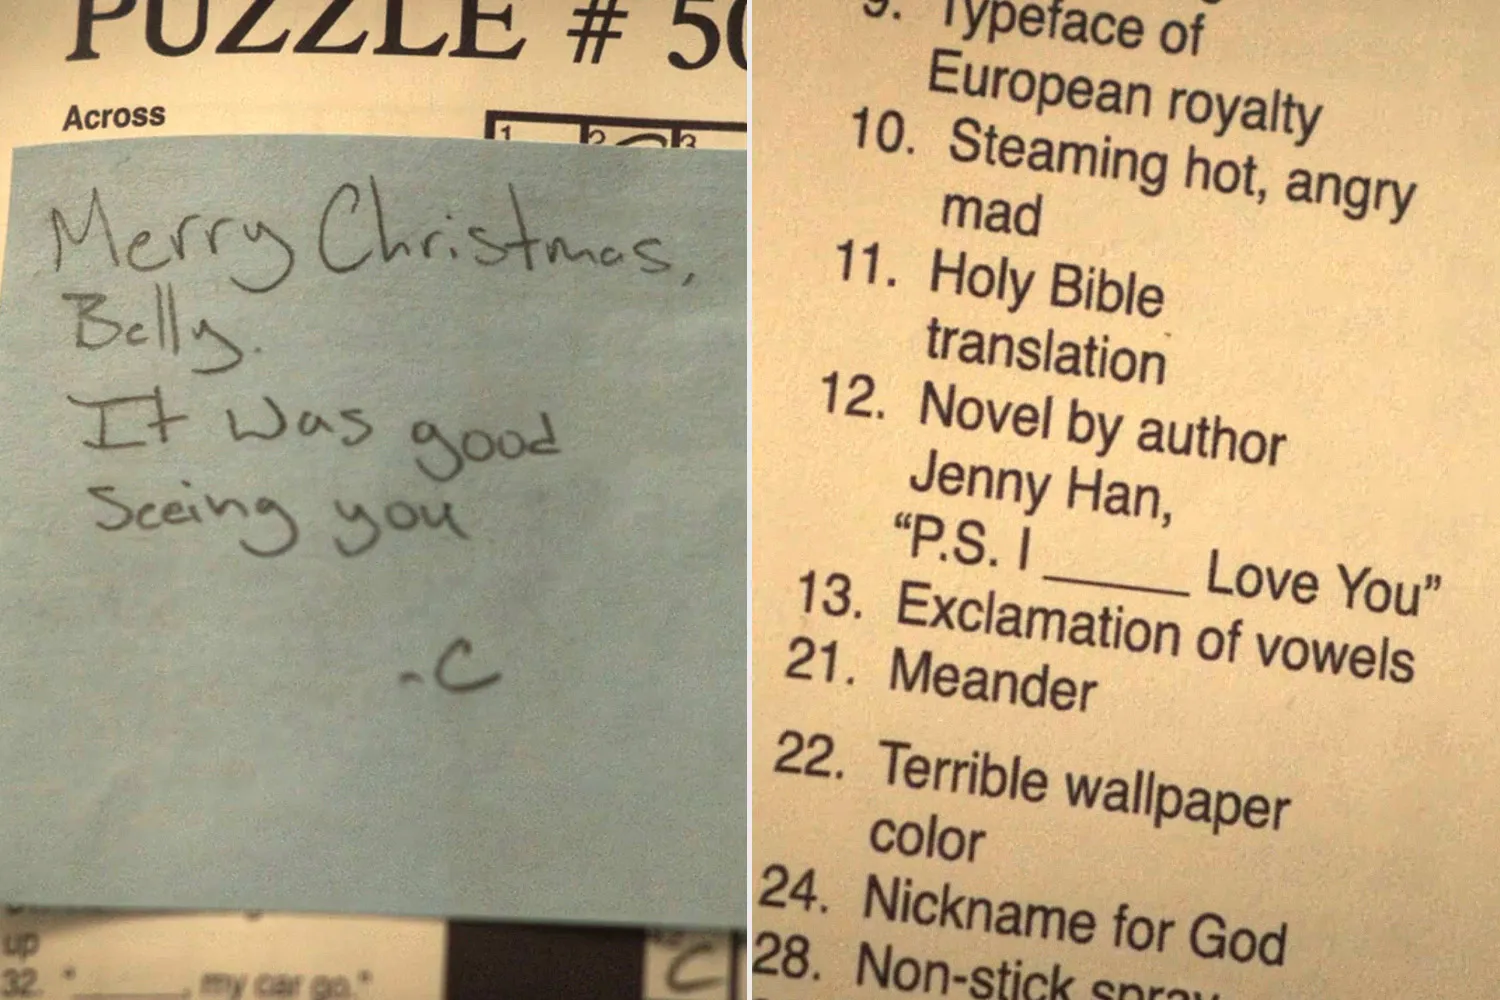 PUZZLE # 50
Across
1 2 3
Merry Christmas,
Belly.
It was good
seeing you
-C
up
32. "_____, my car go."
C
9. Typeface of
European royalty
10. Steaming hot, angry
mad
11. Holy Bible
translation
12. Novel by author
Jenny Han,
“P.S. I _____ Love You”
13. Exclamation of vowels
21. Meander
22. Terrible wallpaper
color
24. Nickname for God
28. Non-stick spray